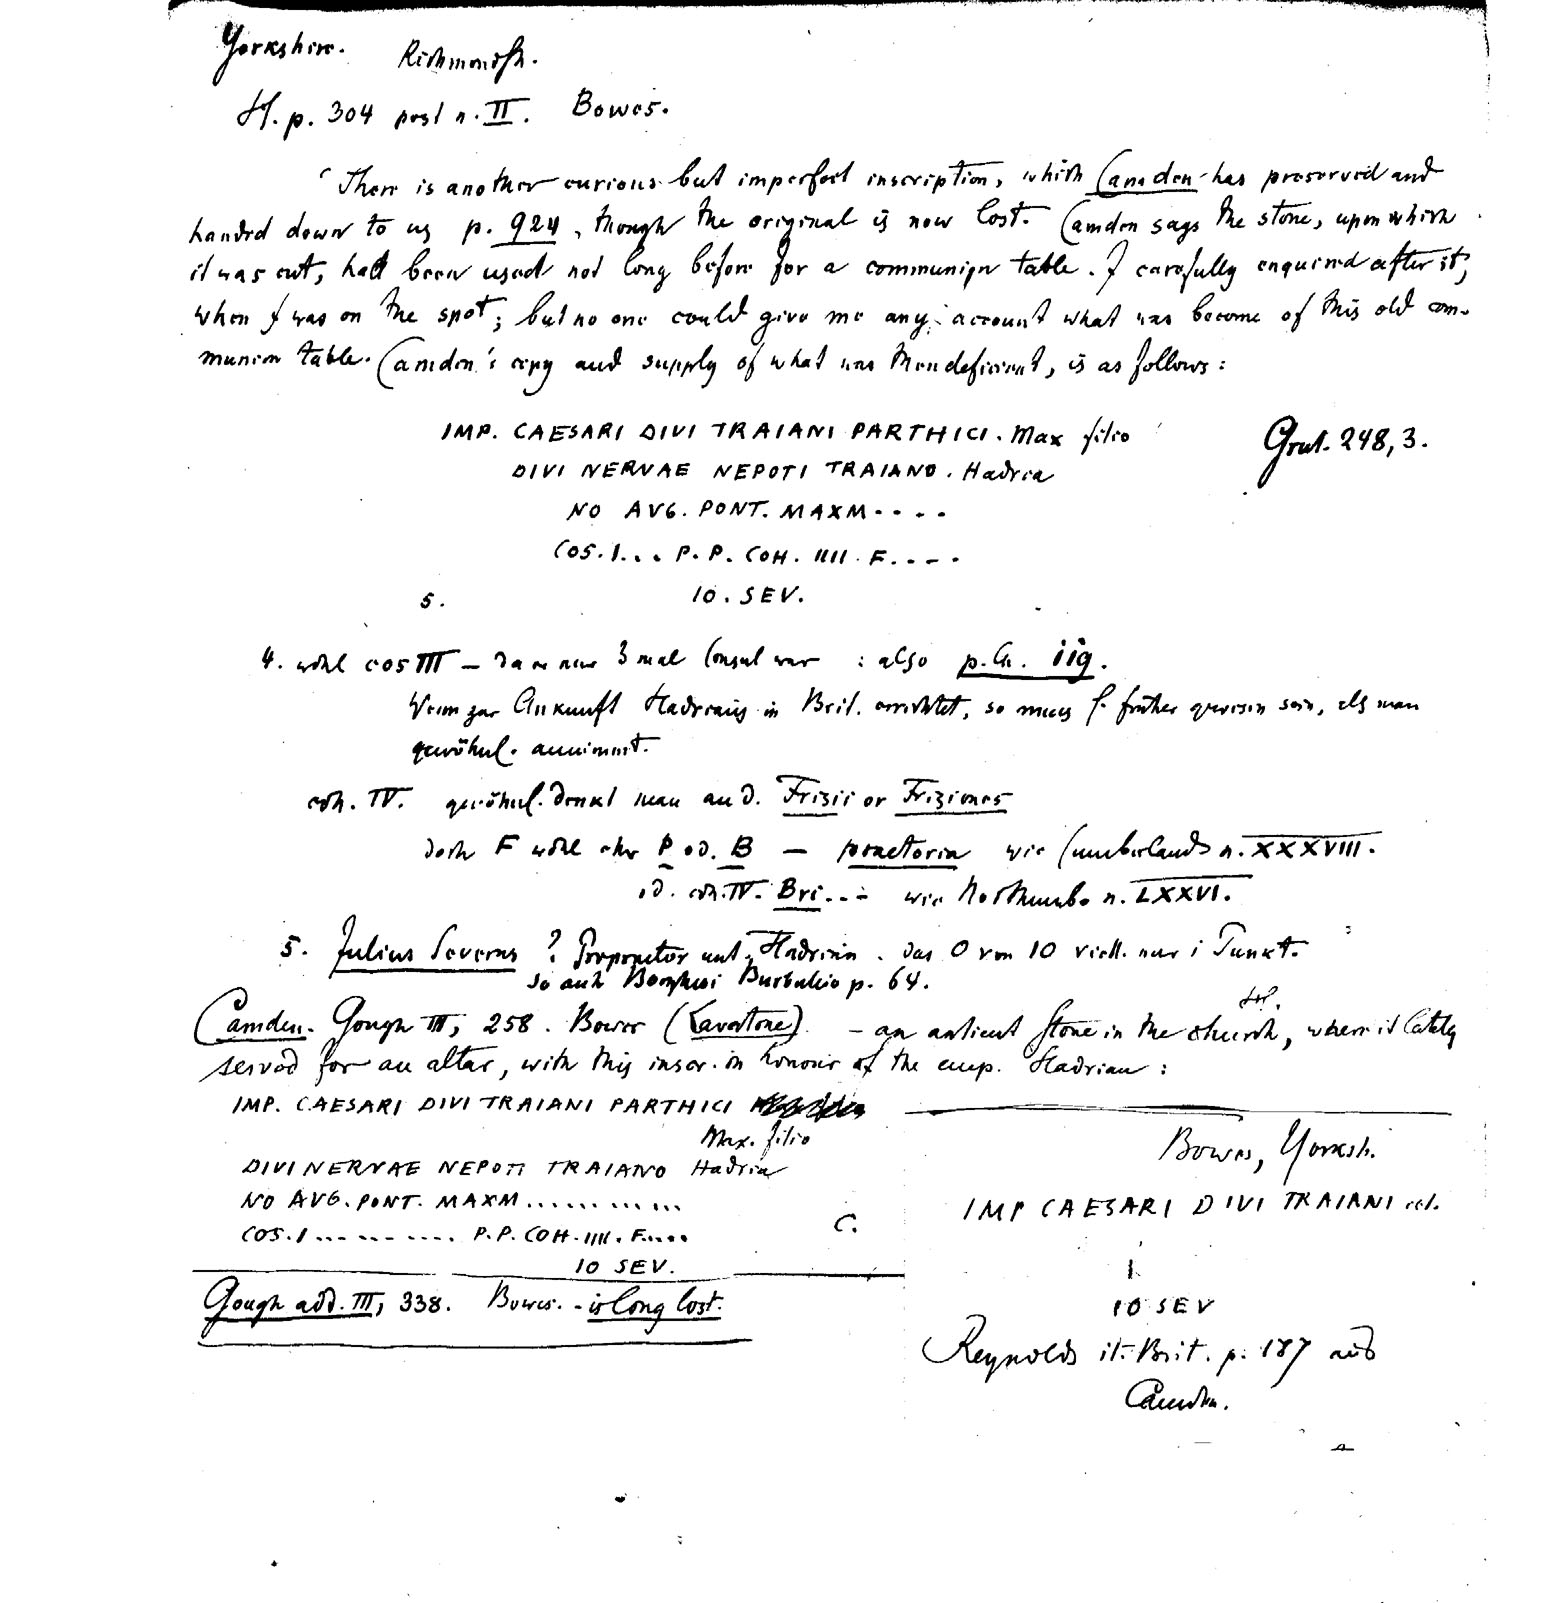 Yorkshire. Richmondsh.
H. p. 304 post n. II. Bowes.
'There is another curious but imperfect inscription, which Camden has preserved and
handed down to us p. 924, though the original is now lost. Camden says the stone, upon which
it was cut, had been used not long before for a communion table. I carefully enquired after it,
when I was on the spot; but no one could give me any account what was become of this old com-
munion table. Camden's copy and supply of what was then deficient, is as follows:
IMP. CAESARI DIVI TRAIANI PARTHICI. Max filio
Grut. 248, 3.
DIVI NERVAE NEPOTI TRAIANO. Hadria
NO AVG. PONT. MAXM....
COS. I... P. P. COH. IIII. F....
5. IO. SEV.
4. wohl cos III – da er nur 3 mal Consul war : also p. C. 119.
Wenn zur Ankunft Hadrians in Brit. errichtet, so muss s. früher gewesen sein, als man
gewöhnl. annimmt.
coh. IV. gewöhnl. denkt man an d. Frisii or Frisiones
doch F wohl eher P od. B – praetoria wie Cumberland n. XXXVIII.
od. coh. IV. Bri... wie Northumb. n. LXXVI.
5. Julius Severus ? Propraetor unt. Hadrian. das O von IO viell. nur i Punkt.
so auch Borghesi Burbuleio p. 64.
Camden. Gough III, 258. Bowes (Lavatone) – an antient stone in the church, where it lately
served for an altar, with this inscr. in honour of the emp. Hadrian:
IMP. CAESARI DIVI TRAIANI PARTHICI
Max. filio
DIVI NERVAE NEPOTI TRAIANO Hadria
NO AVG. PONT. MAXM............
COS. I.......... P. P. COH. IIII. F.....
C.
IO SEV.
Gough add. III, 338. Bowes. - is long lost.
Bowes, Yorksh.
IMP CAESARI DIVI TRAIANI cet.
IO SEV
Reynolds it. Brit. p. 187 aus
Camden.